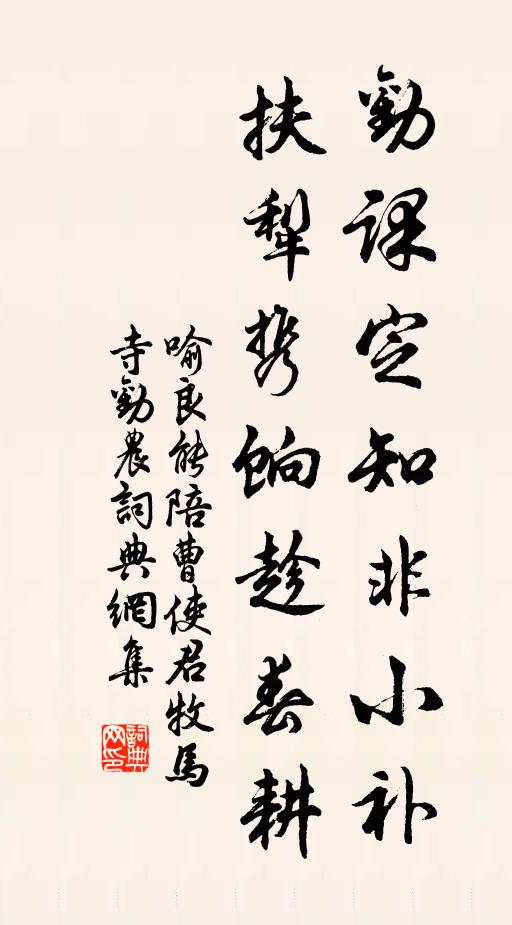 勸課定知非小补
扶犁携餉趁春耕
喻良能陪曹使君牧馬
寺勸農詞典網集
詞典网印